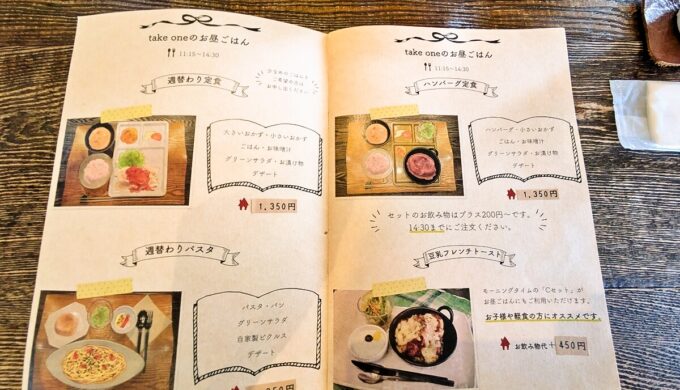 take oneのお昼ごはん
11:15〜14:30
週替わり定食
少なめのごはんを
ご希望の方は
お申し出ください
大さいおかず・小さいおかず
ごはん・お味噌汁
グリーンサラダ・お漬け物
デザート
1,350円
週替わりパスタ
パスタ・パン
グリーンサラダ
自家製ピクルス
デザート
take oneのお昼ごはん
11:15〜14:30
ハンバーグ定食
ハンバーグ・小さいおかず
ごはん・お味噌汁
グリーンサラダ・お漬け物
デザート
1,350円
セットのお飲み物はプラス200円〜です。
14:30までにご注文ください。
豆乳フレンチトースト
モーニングタイムの「Cセット」が
お昼ごはんにもご利用いただけます。
お子様や軽食の方にオススメです。
お飲み物代+450円